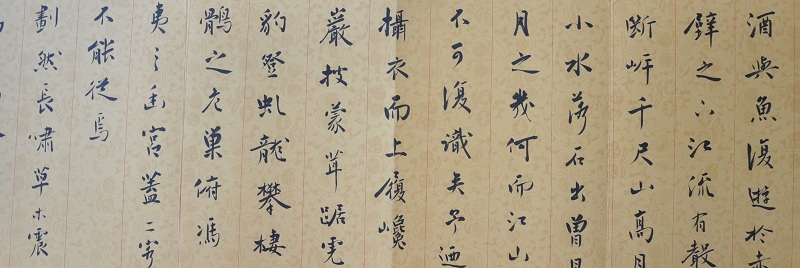 酒與魚復遊於赤
壁之下江流有聲
斷岸千尺山高月
小水落石出曾日
月之幾何而江山
不可復識矣予迺
攝衣而上履巉
巖披蒙茸踞虎
豹登虬龍攀棲
鶻之危巢俯馮
夷之幽宮蓋二客
不能從焉
劃然長嘯草木震